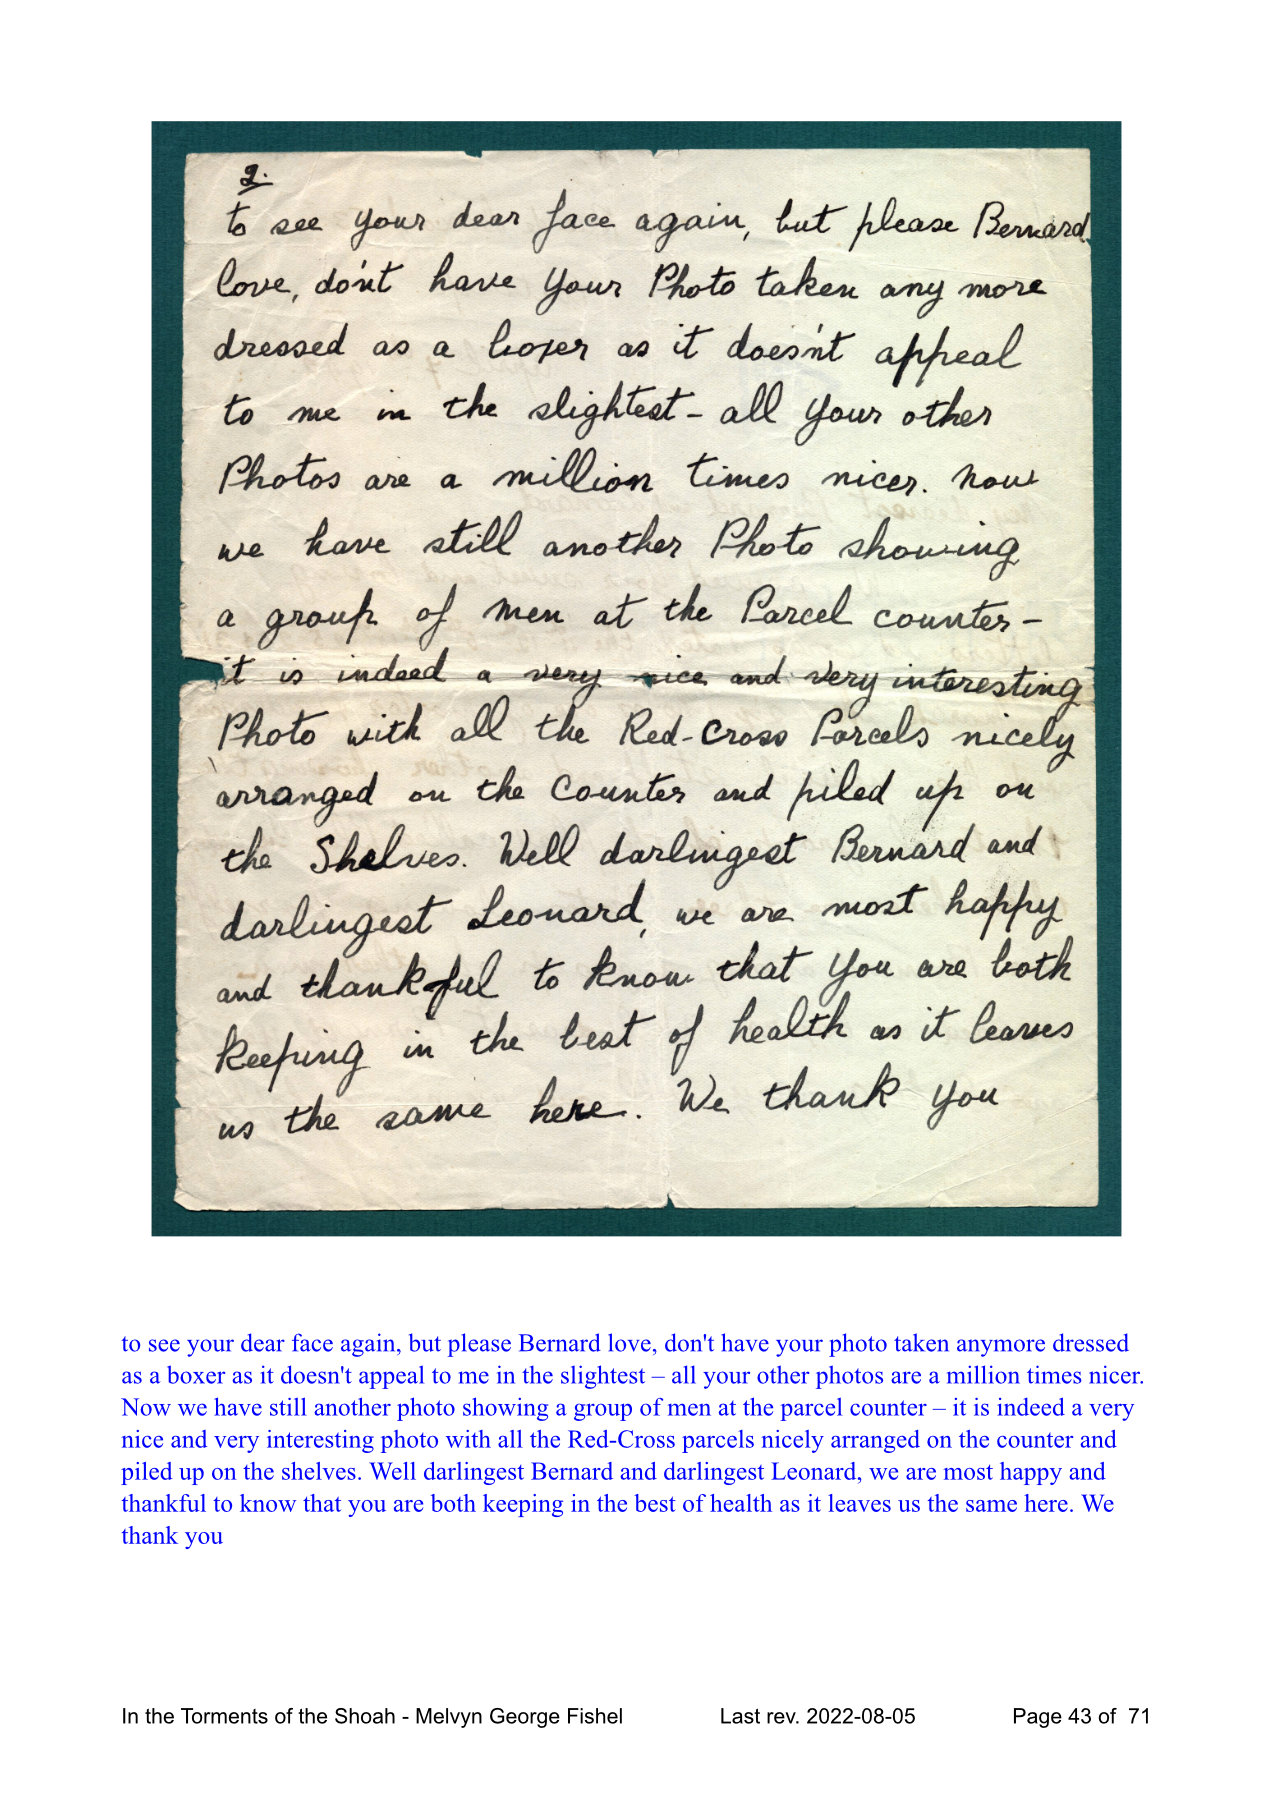 2.
to see your dear face again, but please Bernard
love, don't have your Photo taken any more
dressed as a boxer as it does'nt appeal
to me in the slightest - all your other
Photos are a million times nicer. Now
we have still another Photo showing
a group of men at the Parcel counter -
it is indeed a very nice and very interesting
Photo with all the Red-Cross Parcels nicely
arranged on the Counter and piled up on
the Shelves. Well darlingest Bernard and
darlingest Leonard, we are most happy
and thankful to know that you are both
keeping in the best of health as it leaves
us the same here. We thank you
to see your dear face again, but please Bernard love, don't have your photo taken anymore dressed
as a boxer as it doesn't appeal to me in the slightest – all your other photos are a million times nicer.
Now we have still another photo showing a group of men at the parcel counter – it is indeed a very
nice and very interesting photo with all the Red-Cross parcels nicely arranged on the counter and
piled up on the shelves. Well darlingest Bernard and darlingest Leonard, we are most happy and
thankful to know that you are both keeping in the best of health as it leaves us the same here. We
thank you
In the Torments of the Shoah - Melvyn George Fishel Last rev. 2022-08-05 Page 43 of 71